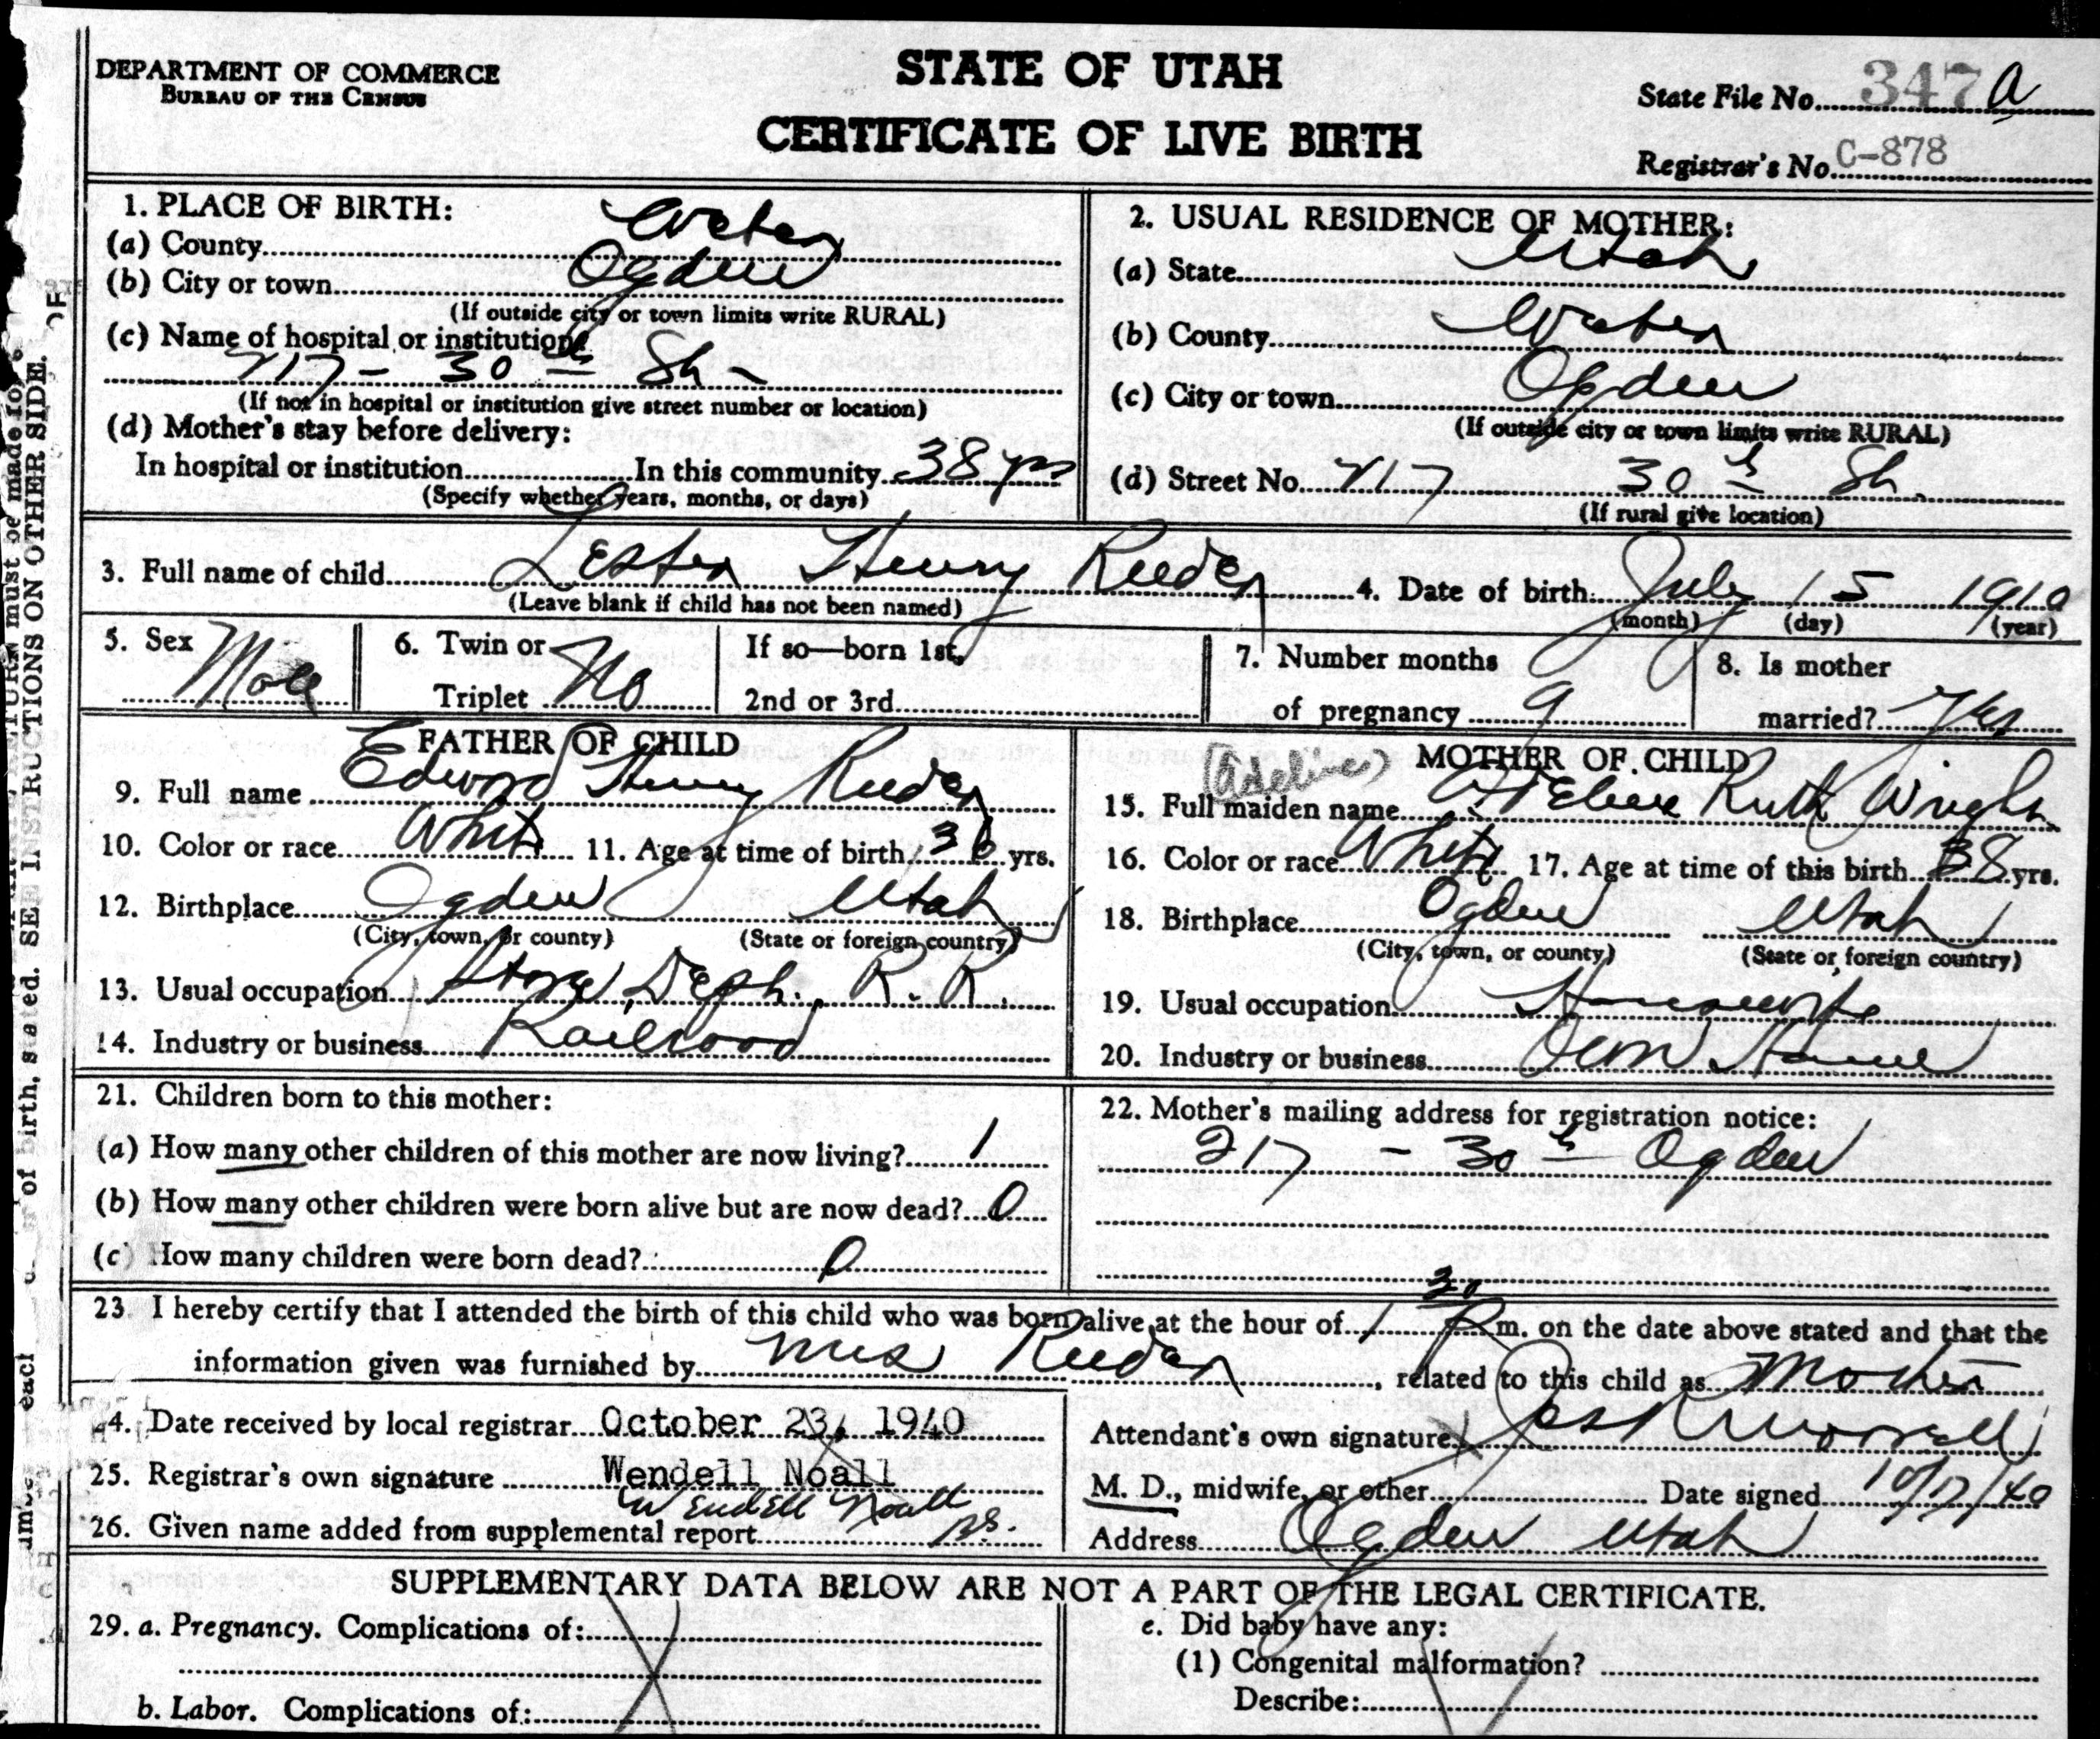 DEPARTMENT OF COMMERCE
BUREAU OF THE CENSUS
STATE OF UTAH
CERTIFICATE OF LIVE BIRTH
State File No. 347 a
Registrar's No. C-878
1. PLACE OF BIRTH:
(a) County Weber
(b) City or town Ogden
(If outside city or town limits write RURAL)
(c) Name of hospital or institution:
717 - 30th St -
(If not in hospital or institution give street number or location)
(d) Mother's stay before delivery:
In hospital or institution In this community 38 yrs
(Specify whether years, months, or days)
2. USUAL RESIDENCE OF MOTHER:
(a) State Utah
(b) County Weber
(c) City or town Ogden
(If outside city or town limits write RURAL)
(d) Street No. 717 30th St.
(If rural give location)
3. Full name of child Lester Henry Reeder 4. Date of birth: July 15 1910
(Leave blank if child has not been named) (month) (day) (year)
5. Sex Male
6. Twin or Triplet No
If so—born 1st,
2nd or 3rd
7. Number months
of pregnancy 9
8. Is mother
married? Yes
FATHER OF CHILD
9. Full name Edward Henry Reeder
10. Color or race White 11. Age at time of birth 36 yrs.
12. Birthplace Ogden Utah
(City, town, or county) (State or foreign country)
13. Usual occupation Store Dept. R. R.
14. Industry or business Railroad
(Adeline) MOTHER OF CHILD
15. Full maiden name Ruth Wright
16. Color or race White 17. Age at time of this birth 38 yrs.
18. Birthplace Ogden Utah
(City, town, or county) (State or foreign country)
19. Usual occupation Housewife
20. Industry or business Own Home
21. Children born to this mother:
(a) How many other children of this mother are now living? 1
(b) How many other children were born alive but are now dead? 0
(c) How many children were born dead? 0
22. Mother's mailing address for registration notice:
217 - 30th Ogden
23. I hereby certify that I attended the birth of this child who was born alive at the hour of 1 30 P m. on the date above stated and that the
information given was furnished by Mrs Reeder, related to this child as Mother
24. Date received by local registrar October 23, 1940
25. Registrar's own signature Wendell Noall
Wendell Noall
26. Given name added from supplemental report
Attendant's own signature
M. D., midwife, or other Date signed 10/17/40
Address Ogden Utah
SUPPLEMENTARY DATA BELOW ARE NOT A PART OF THE LEGAL CERTIFICATE.
29. a. Pregnancy. Complications of:
b. Labor. Complications of:
e. Did baby have any:
(1) Congenital malformation?
Describe:
must be made for
of birth, stated. SEE INSTRUCTIONS ON OTHER SIDE.